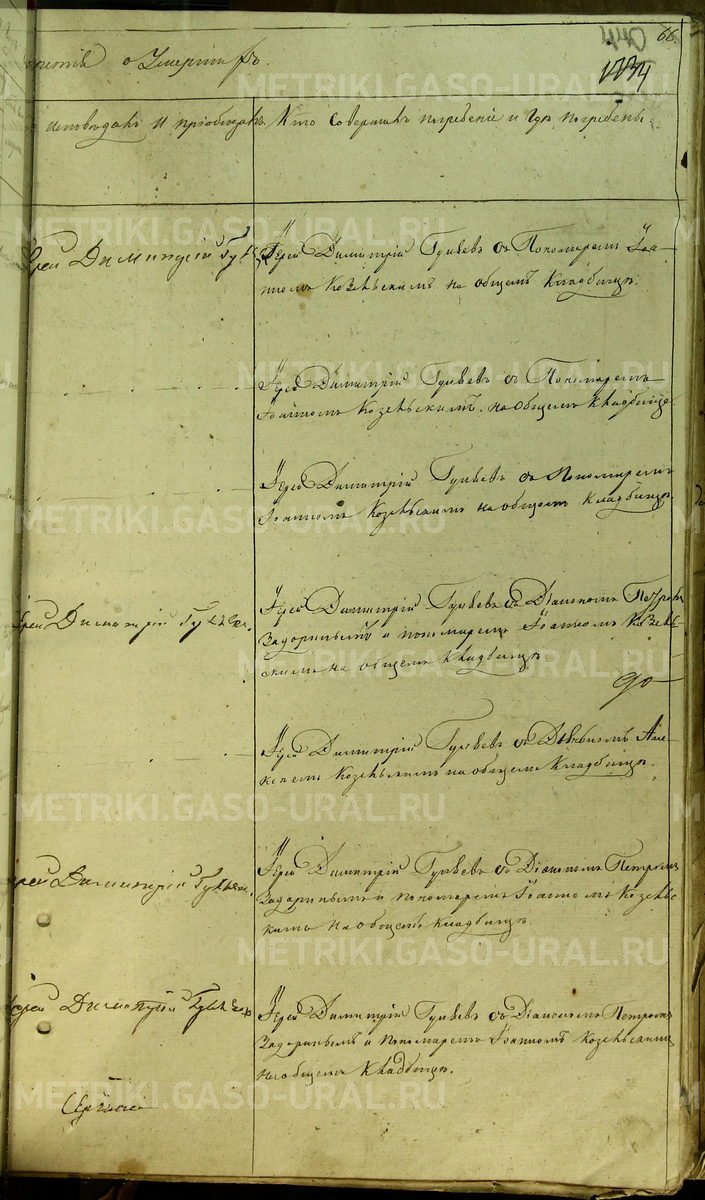 66.
1734
о Умершихъ.
исповѣдалъ и пріобщалъ.
Кто совершалъ погребеніе и гдѣ погребены.
Іерей Димитрій
Іерей Димитрій Гуляевъ съ Пономаремъ Іоан-
номъ Козельскимъ на общемъ кладбищѣ.
Іерей Димитрій Гуляевъ съ Пономаремъ
Іоанномъ Козельскимъ. на общемъ кладбищѣ
Іерей Димитрій Гуляевъ съ пономаремъ
Іоанномъ Козельскимъ на общемъ кладбищѣ
Іерей Димитрій Гуляевъ.
Іерей Димитрій Гуляевъ съ Діакономъ Петромъ
Задоринымъ и пономаремъ Іоанномъ Козель-
скимъ на общемъ кладбищѣ
Іерей Димитрій Гуляевъ съ
Козельскимъ на общемъ кладбищѣ.
Іерей Димитрій Гуляевъ.
Іерей Димитрій Гуляевъ съ Діакономъ Петромъ
Задоринымъ и пономаремъ Іоанномъ Козельс-
кимъ на общемъ кладбищѣ.
Іерей Димитрій Гуляевъ
Іерей Димитрій Гуляевъ съ Діакономъ Петромъ
Задоринымъ и пономаремъ Іоанномъ Козельскимъ
на общемъ кладбищѣ.
METRIKI.GASO-URAL.RU